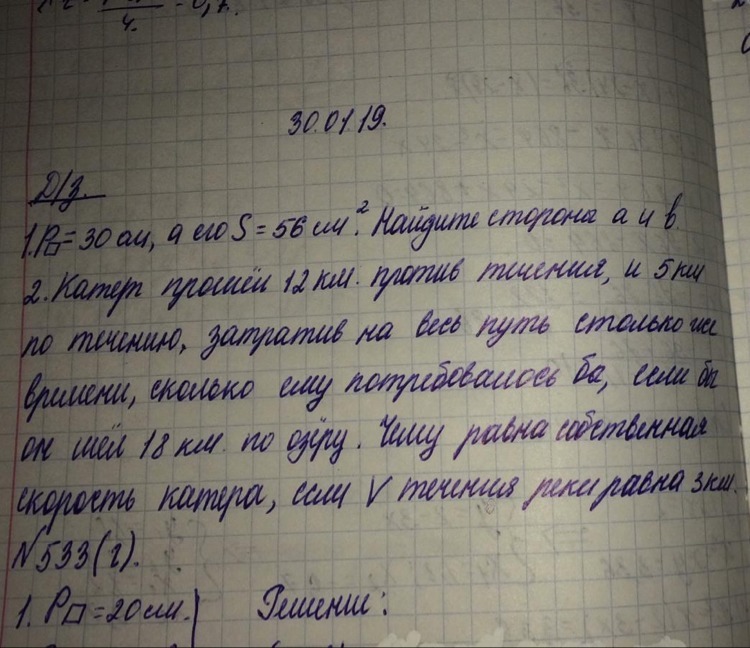 30.01.19.
Д/з.
1. P▭ = 30 см, а его S = 56 см². Найдите сторона а и в.
2. Катер прошёл 12 км. против течения, и 5 км
по течению, затратив на весь путь столько же
времени, сколько ему потребовалось ба, если бы
он шёл 18 км. по озёру. Чему равна собственная
скорость катера, если V течения реки равна 3 км.
N533(г).
1. P▭ = 20 см. Решение: